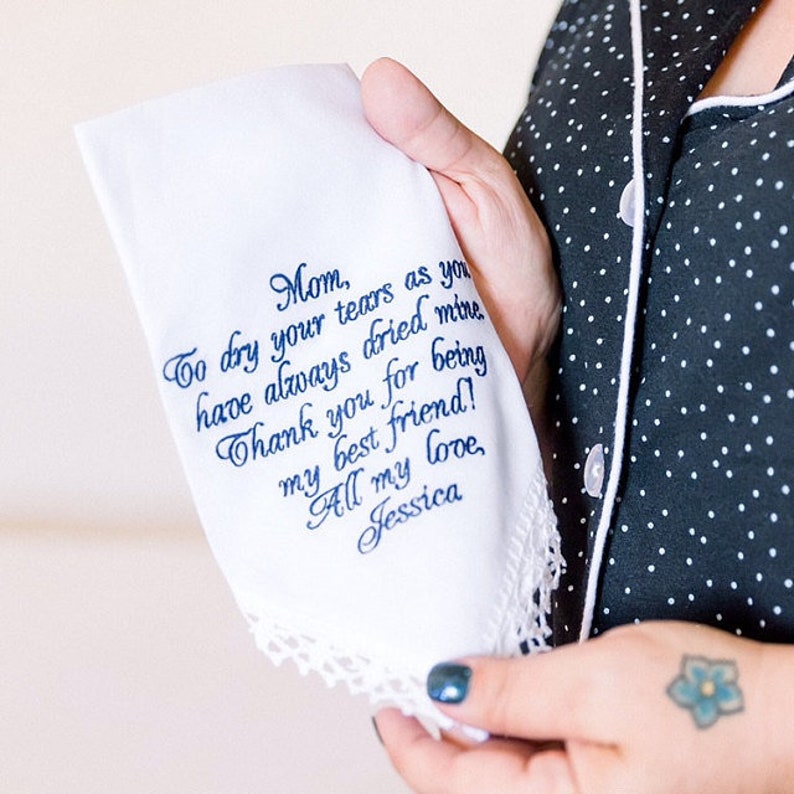 Mom,
To dry your tears as you
have always dried mine.
Thank you for being
my best friend!
All my love,
Jessica